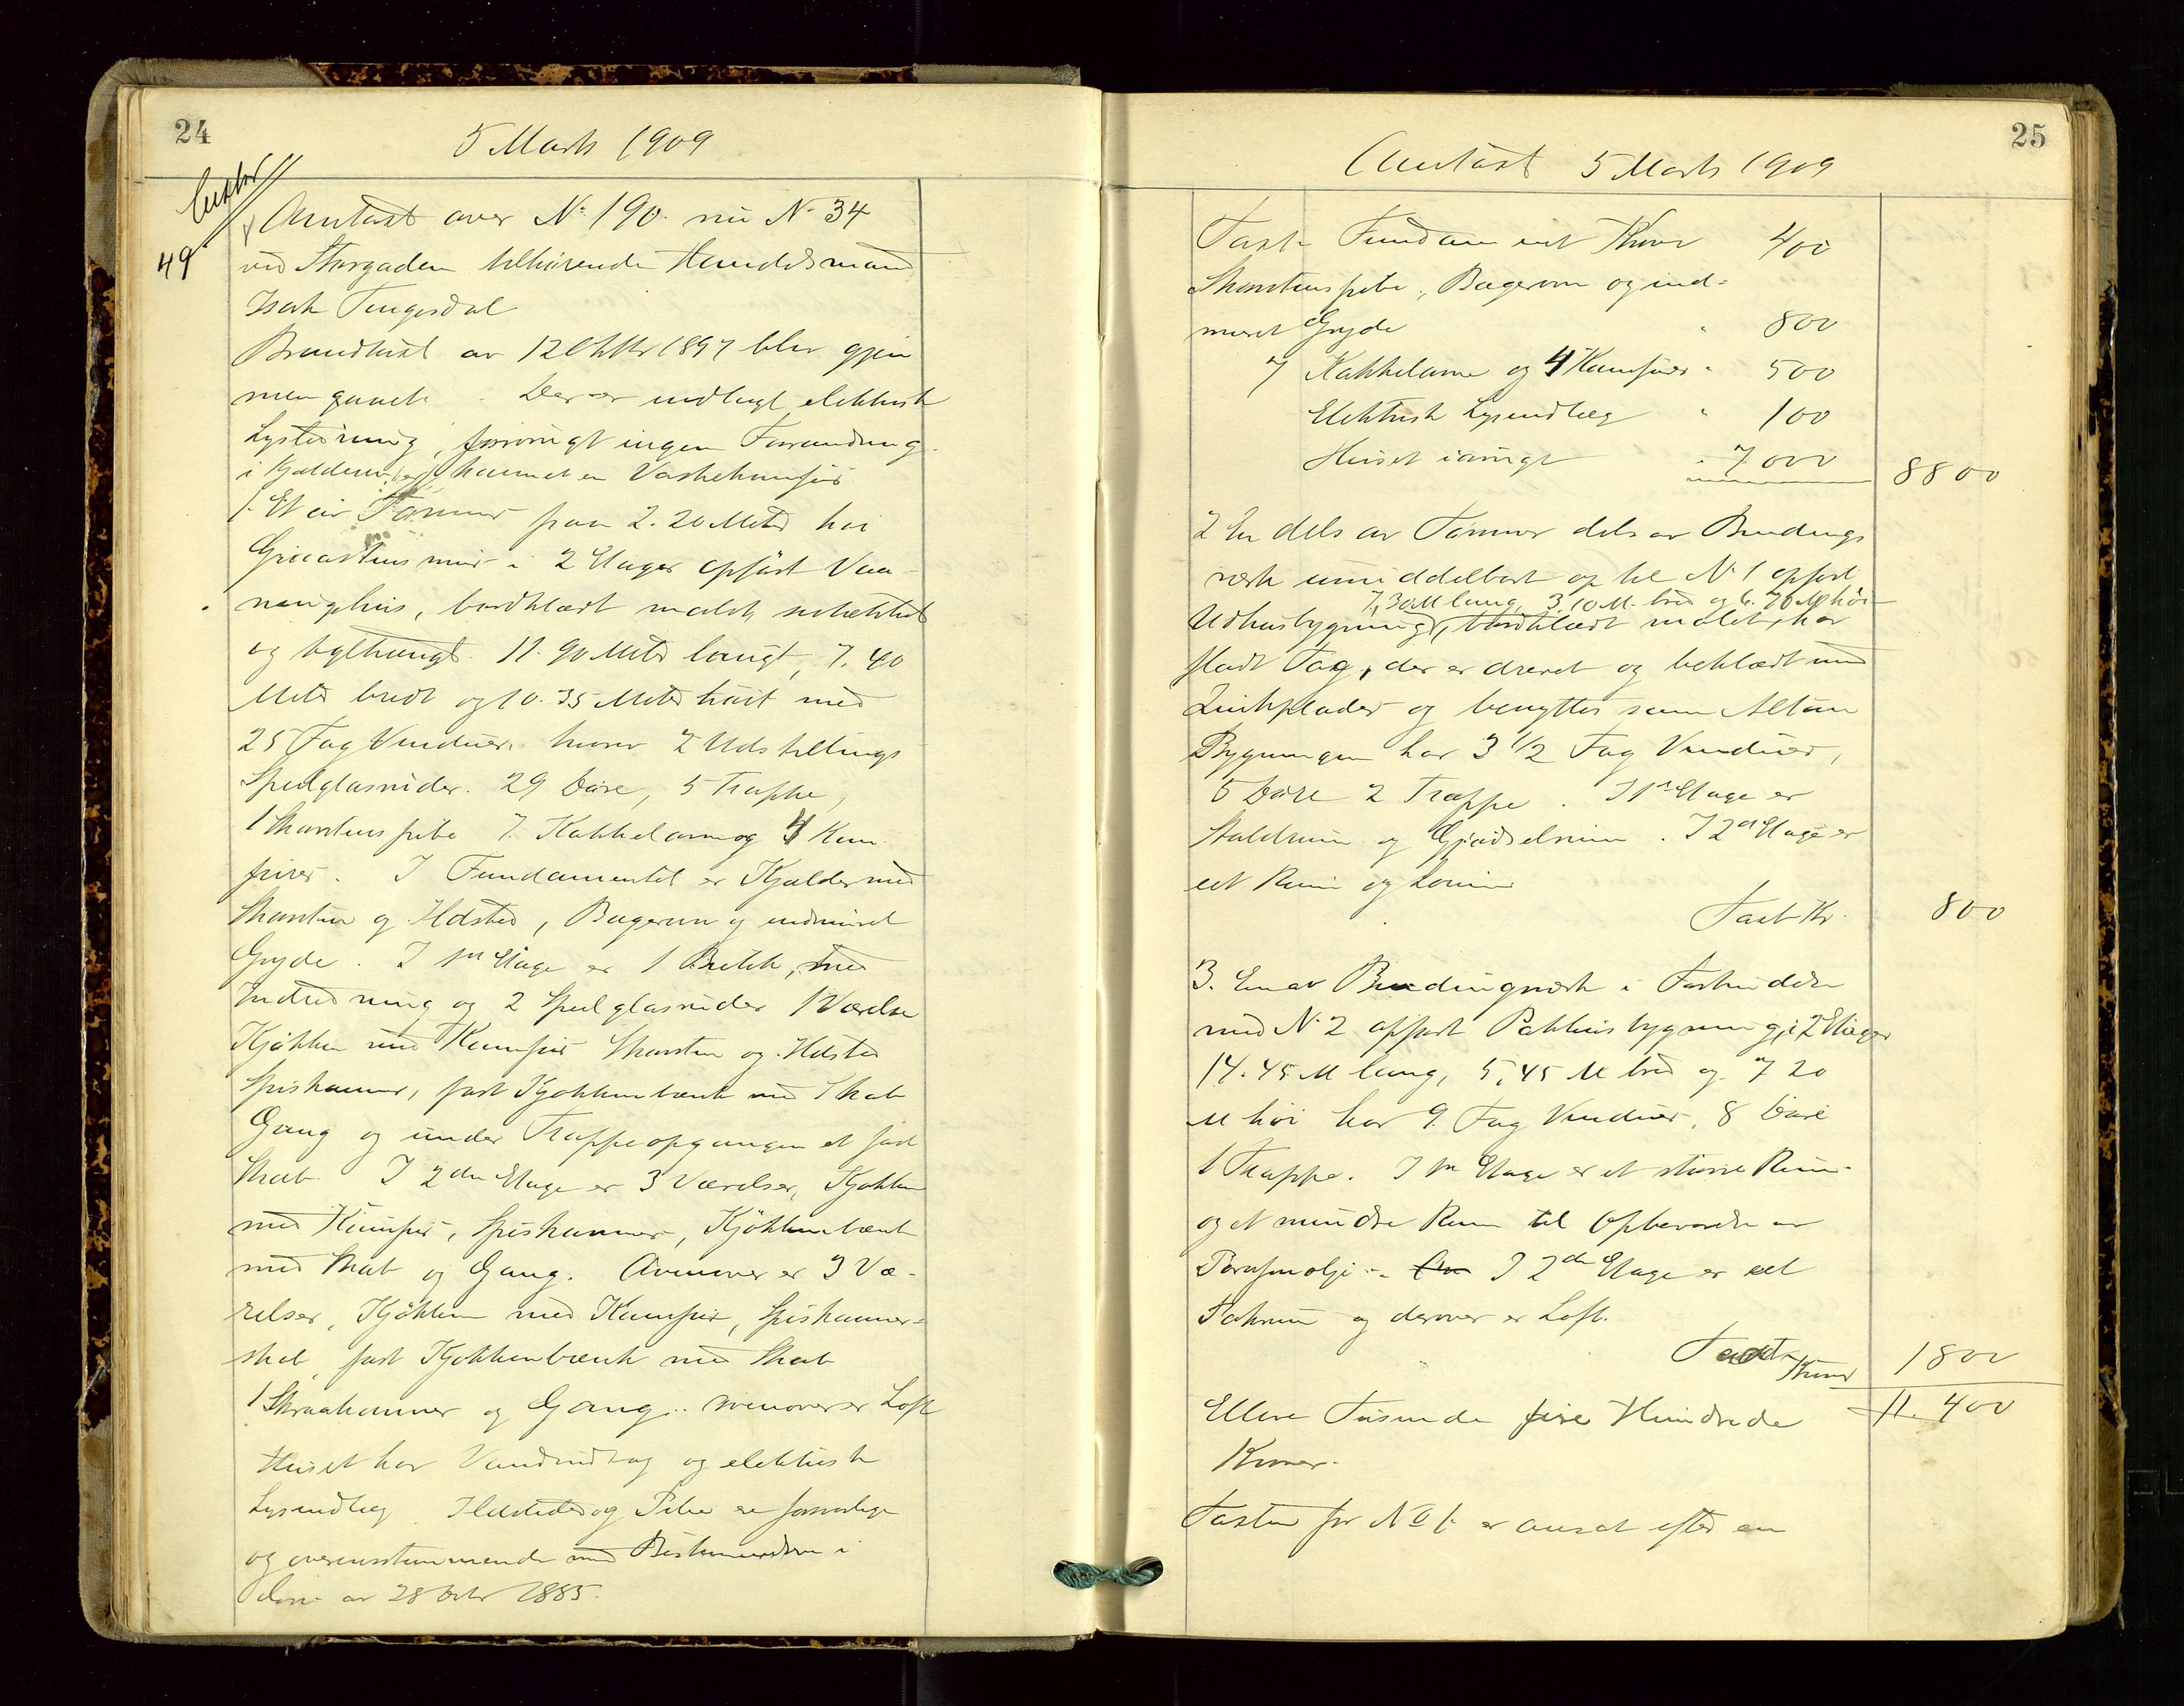 24
5 Marts 1909
49
Omtaxt over No 190. nu No 34
ved Storgaden tilhørende Handelsmand
Isak Tengesdal
Brandtaxt av 12 Oktbr 1897 blev gjen
nemgaaet. Der er indlagt elektrisk
Lysledning, forøvrigt ingen Forandring
i Kjælderen er kommet en Vaskekomfur
1. Et av Tømmer paa 2.20 Meter høi
Graastensmur i 2 Etager opført Vaa-
ningshus, bordklædt malet
og teglhængt. 11.90 Meter langt, 7.40
Meter bredt og 10.35 Meter høit med
25 Fag Vinduer hvorav 2 Udstillings
Speilglasruder. 29 Døre, 5 Trappe,
1 Skorstenspibe 7 Kakkelovne og 4 Kom-
furer. I Fundamentet er Kjælder med
Skorsten og Ildsted, Bagerovn og indmuret
Gryde. I 1ste Etage er 1 Butik, med
Indredning og 2 Speilglasruder 1 Værelse
Kjøkken med Komfur Skorsten og Ildsted
Spiskammer, fast Kjøkkenbænk med Skab
Gang og under Trappeopgangen et fast
Skab. I 2den Etage er 3 Værelser, Kjøkken
med Komfur, Spiskammer, Kjøkkenbænk
med Skab og Gang. Ovenover er 3 Væ-
relser, Kjøkken med Komfur, Spiskammer-
skab, fast Kjøkkenbænk med Skab
1 Skraakammer og Gang. Ovenover er Loft
Huset har Vandindlag og elektrisk
Lysindlæg. Ildsteder og Pibe er forsvarlige
og overensstemmende med Bestemmelserne i
Lov av 28 Oktbr 1885.
25
Omtaxt 5 Marts 1909
Taxt Fundament Kroner 400
Skorstenspibe, Bagerovn og ind-
muret Gryde " 800
7 Kakkelovne og 4 Komfurer " 500
Elektrisk Lysindlæg " 100
Huset iøvrigt " 7000 8800
2 En dels av Tømmer dels av Bindings
værk umiddelbart op til No 1 opført
7,30 M lang, 3.10 M. bred og 6.70 M høi
Udhusbygning, bordklædt malet, har
fladt Tag, der er drevet og beklædt med
Zinkplader og benyttes som Altan
Bygningen har 3 1/2 Fag Vinduer,
5 Døre 2 Trappe. I 1ste Etage er
Staldrum og Gjødselrum. I 2den Etage er
et Rum og
Taxt Kr. 800
3. En av Bindingsværk i Forbindelse
med No 2 opført Pakhusbygning, i 2 Etager
14.45 M lang, 5,45 M bred og 7 20
M høi har 9 Fag Vinduer, 8 Døre
1 Trappe. I 1ste Etage er et større Rum
og et mindre Rum til Opbevarelse av
Parafinolje. I 2den Etage er et
Pakrum og derover er Loft.
Taxt Kroner 1800
11.400
Elleve Tusinde fire Hundrede
Kroner.
Taxten for No 1 er ansat efter en